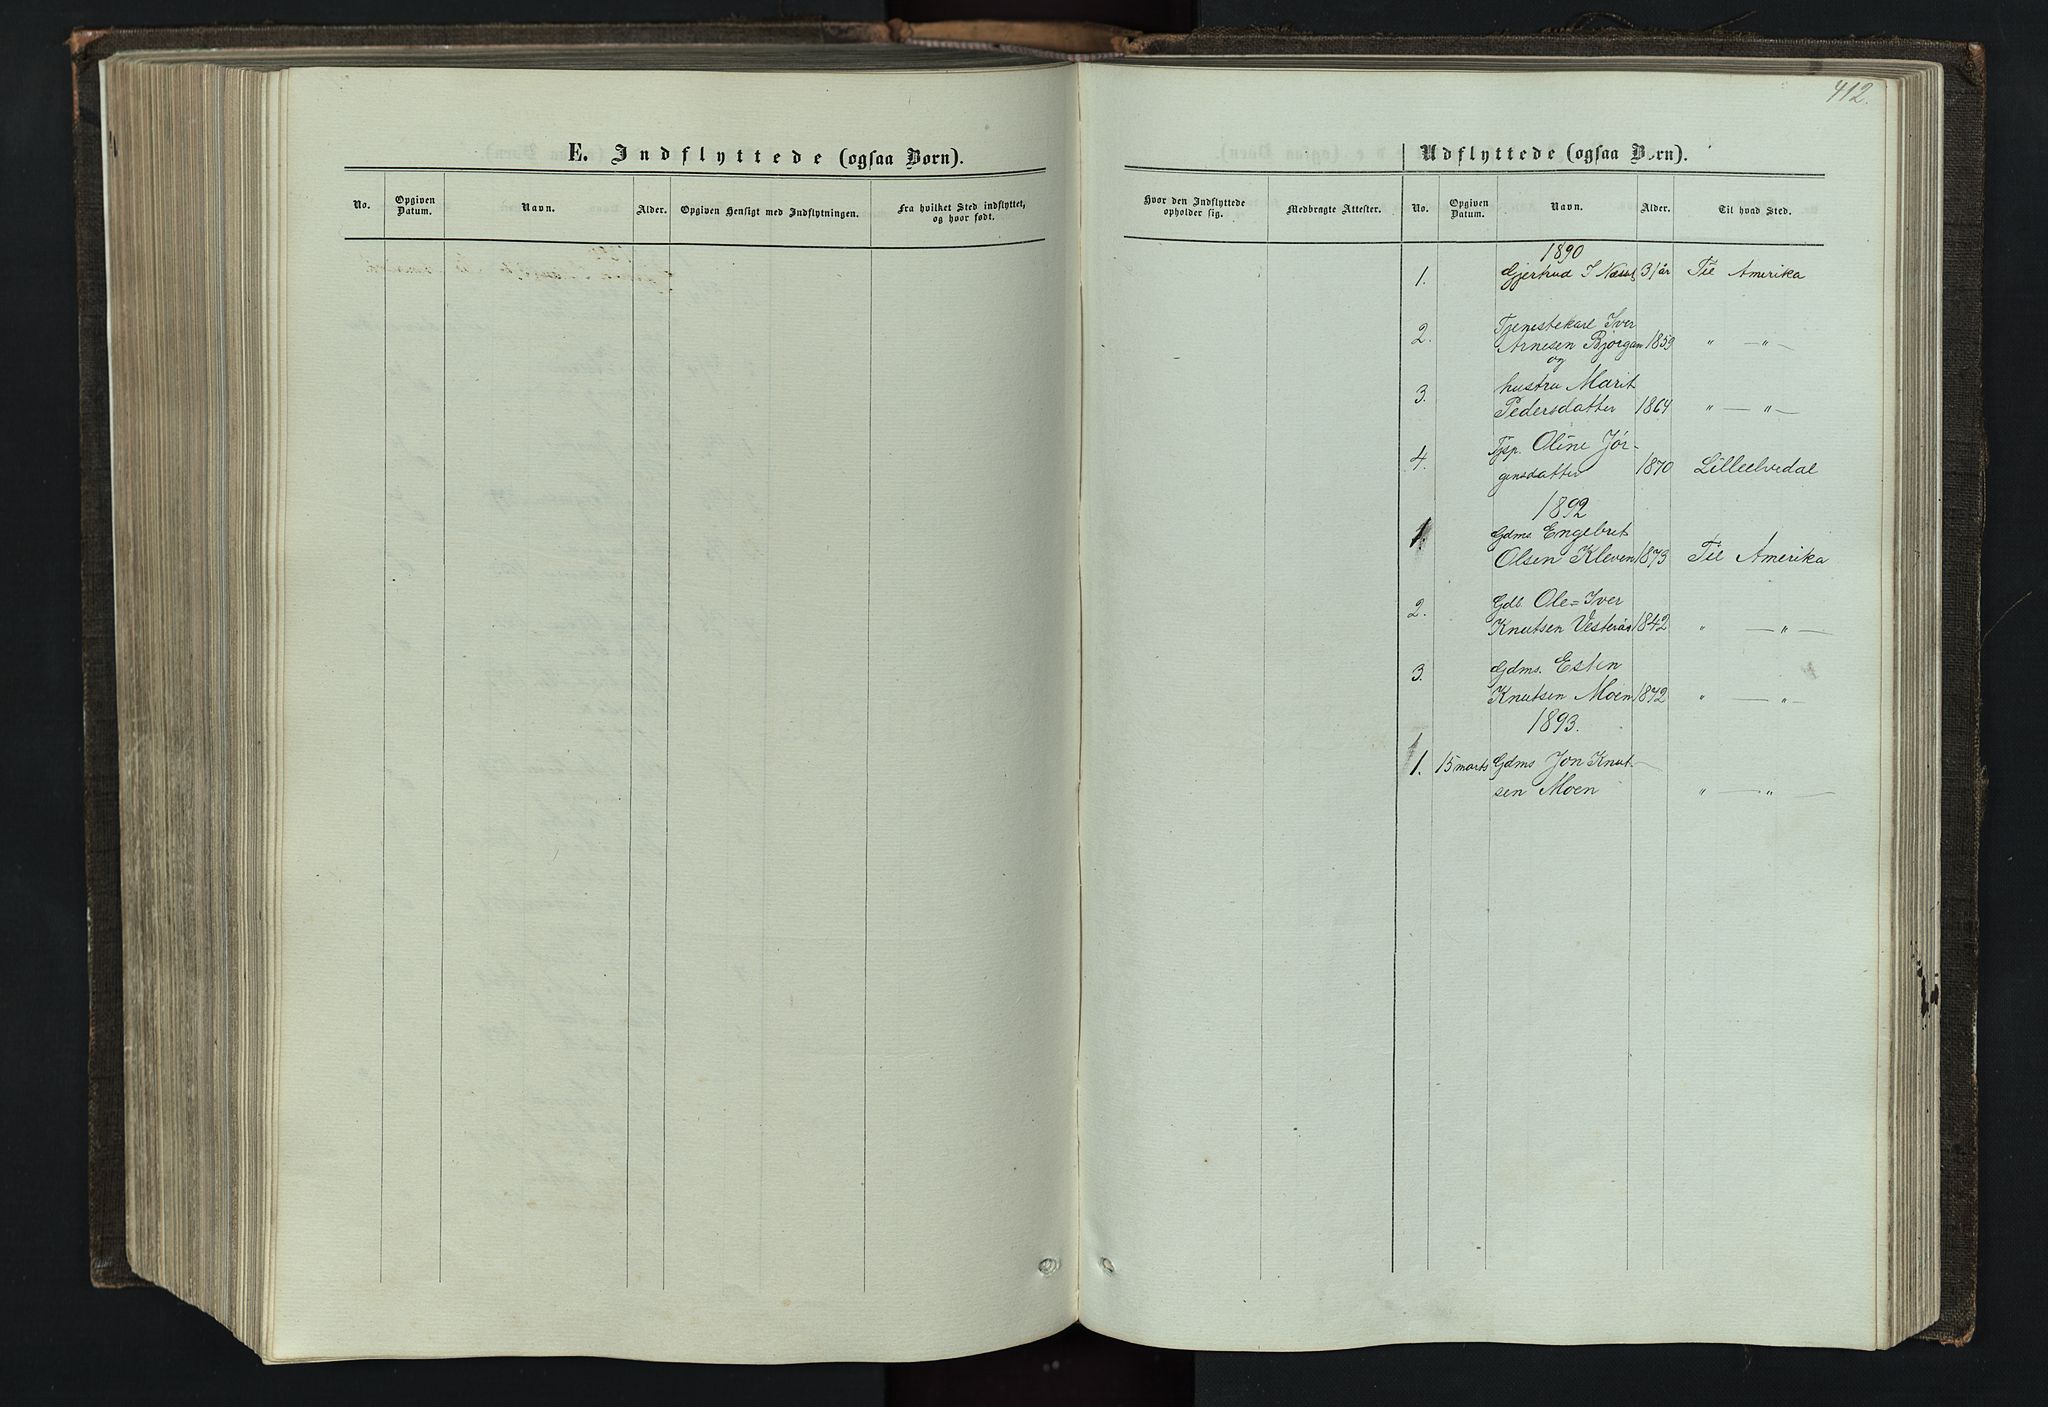 412.
E. Indflyttede (ogsaa Børn).
No. Opgiven Datum. Navn. Alder. Opgiven Hensigt med Indflytningen. Fra hvilket Sted indflyttet, og hvor født.
Udflyttede (ogsaa Børn).
Hvor den Indflyttede opholder sig. Medbragte Attester. No. Opgiven Datum. Navn. Alder. Til hvad Sted.
1890
1. Gjertrud I 31 år Til Amerika
Tjenestekarl Iver
2. Arnesen Bjørgan 1859 " — " —
og
3. hustru Marit
Pedersdatter 1864 " — " —
4. Tjsp. Oline Jør-
gensdatter 1870 Lilleelvedal
1892
1. Gdms. Engebret
Olsen Kleven 1873 Til Amerika
2. Gdb. Ole=Iver
Knutsen Vesterås 1842 " — " —
3. Gdms. Esten
Knutsen Moen 1872 " — " —
1893.
1. 15 marts Gdms Jon Knut- —
sen Moen " — " —